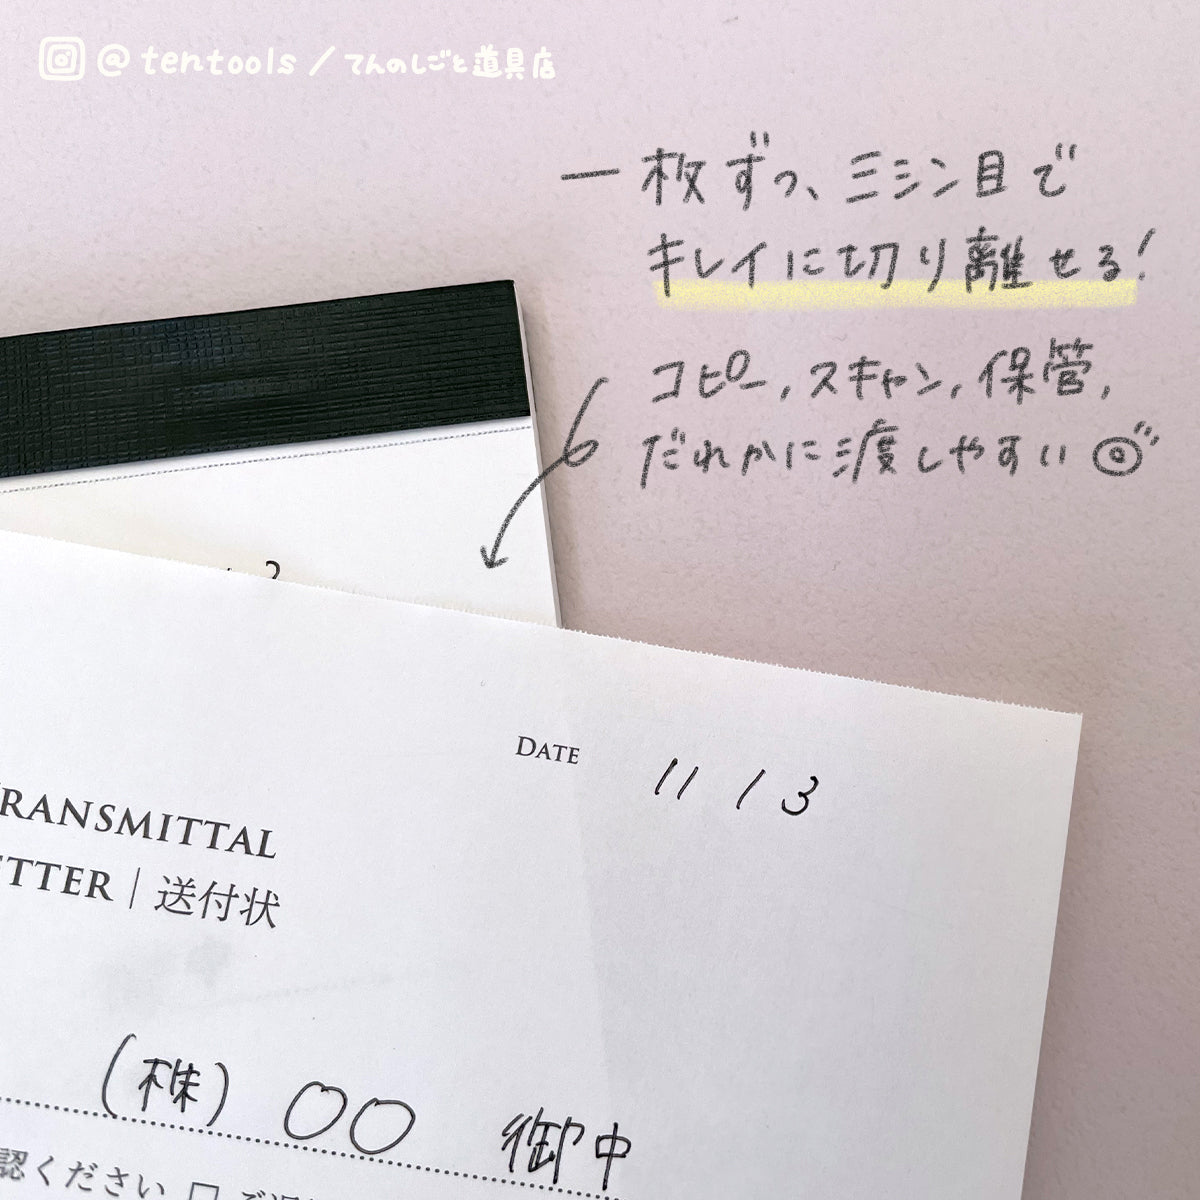 @tentools / てんのしごと道具店
一枚ずつ、ミシン目で
キレイに切り離せる!
コピー,スキャン,保管,
だれかに渡しやすい◎
2
DATE 11 / 3
TRANSMITTAL
LETTER | 送付状
(株) 〇〇 御中
認ください □